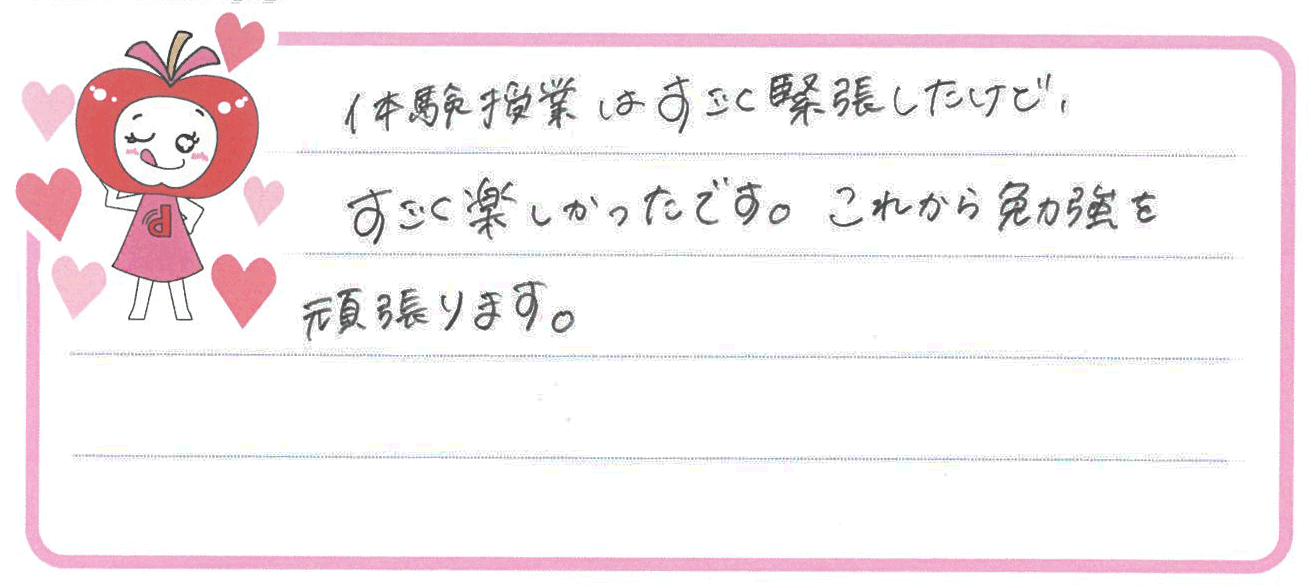 体験授業はすごく緊張したけど、
すごく楽しかったです。これから勉強を
頑張ります。